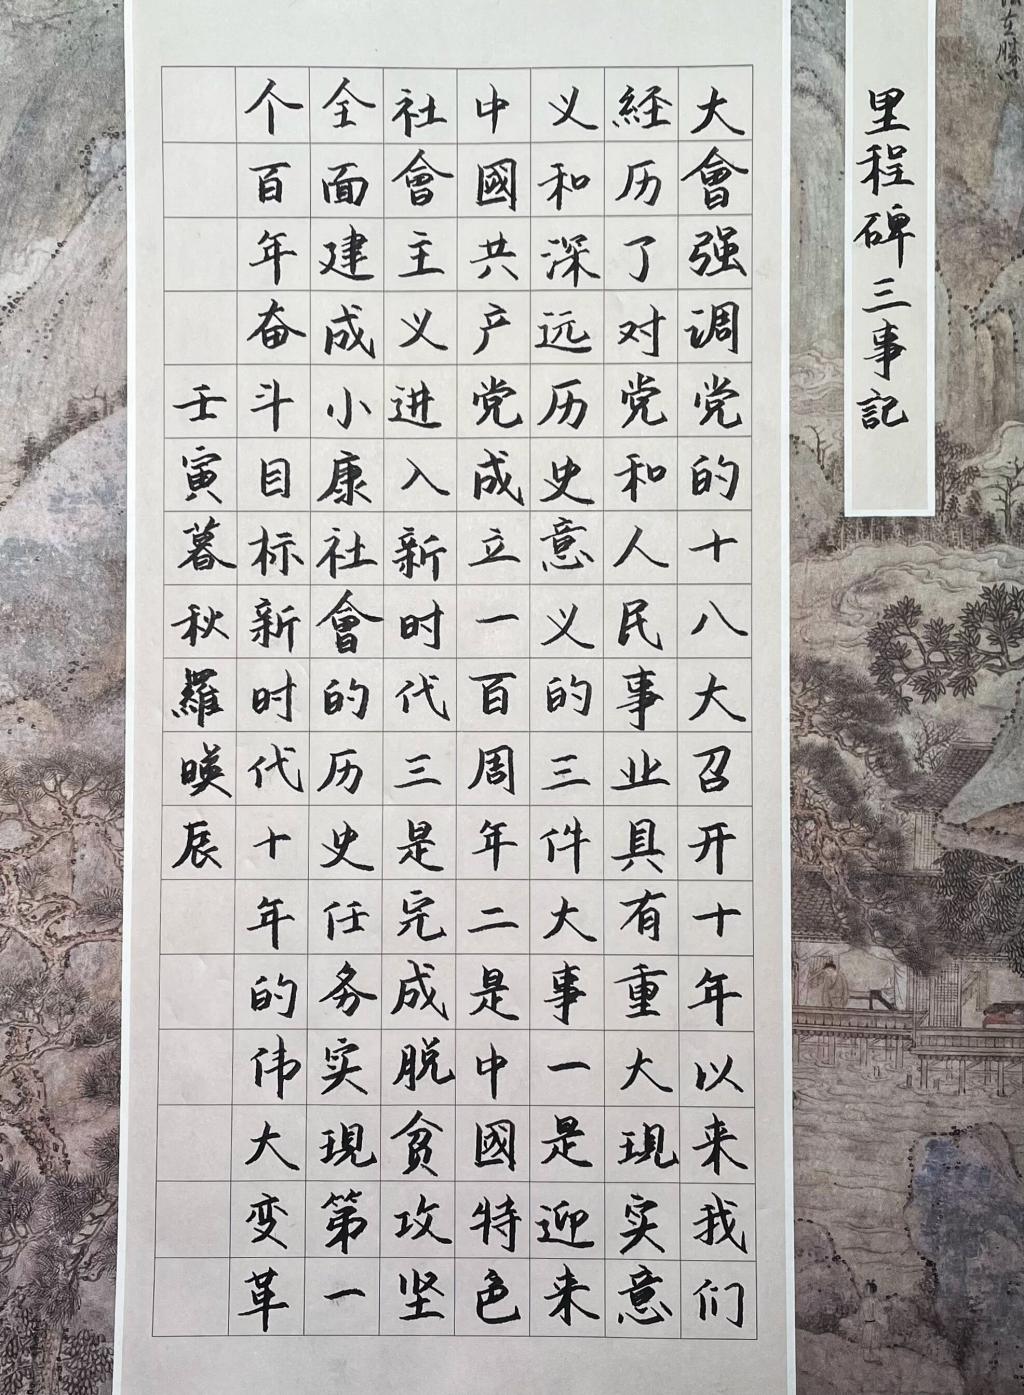 里程碑三事記
大會强调党的十八大召开十年以来我们
経历了对党和人民事业具有重大現实意
义和深远历史意义的三件大事一是迎来
中國共产党成立一百周年二是中國特色
社會主义进入新时代三是完成脱贫攻坚
全面建成小康社會的历史任务实現第一
个百年奋斗目标新时代十年的伟大变革
壬寅暮秋羅暎辰